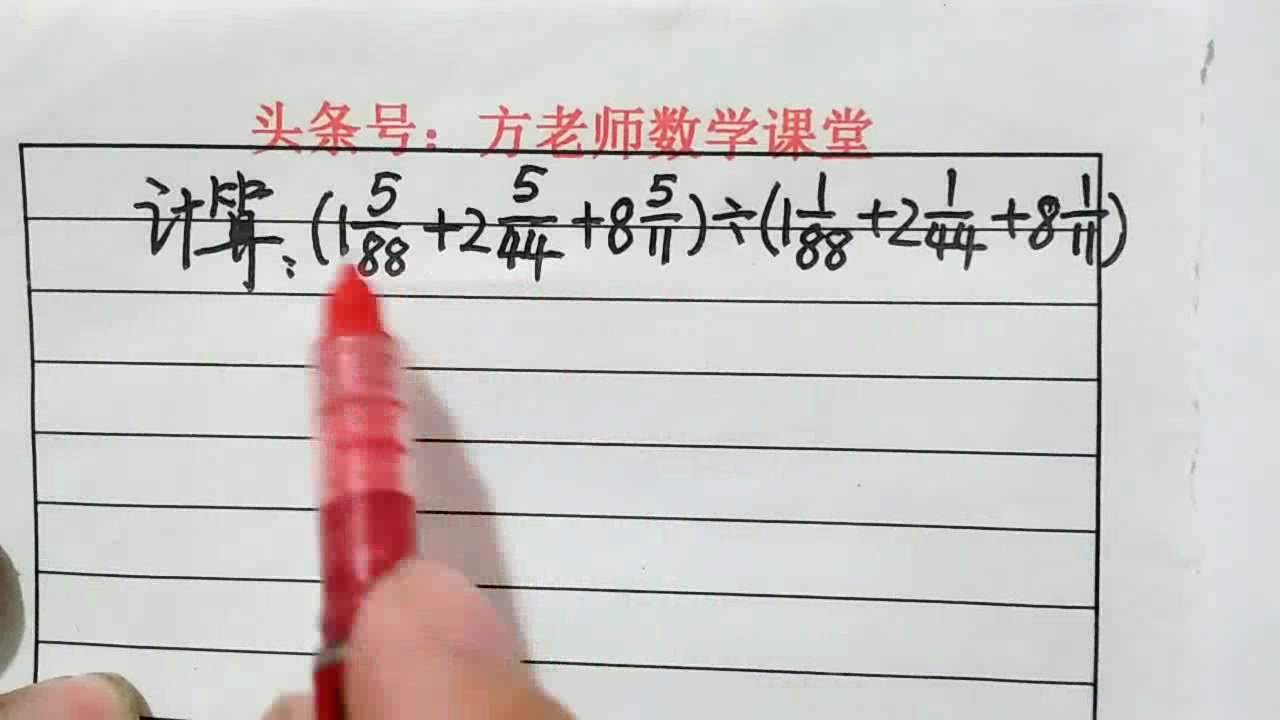 头条号：方老师数学课堂
计算：(1 5/88 + 2 5/44 + 8 5/11) ÷ (1 1/88 + 2 1/44 + 8 1/11)